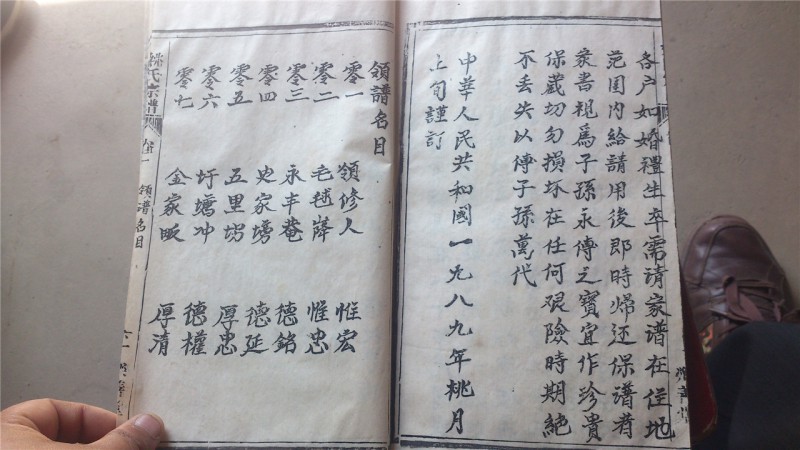 各户如婚禮生卒需请家谱在住地
范围内给請用後即時帰还保谱者
衆書視爲子孫永傳之寳宜作珍貴
保藏切勿損坏在任何艰險時期絶
不丢失以傳子孫萬代
中華人民共和國一九八九年桃月
上旬謹訂
領譜名目
零一 領修人 惟宏
零二 毛毬 惟忠
零三 永丰菴 德銘
零四 史家塆 德延
零五 五里 厚忠
零六 圩塘冲 德權
零七 金家畈 厚清
氏宗譜
領譜名目